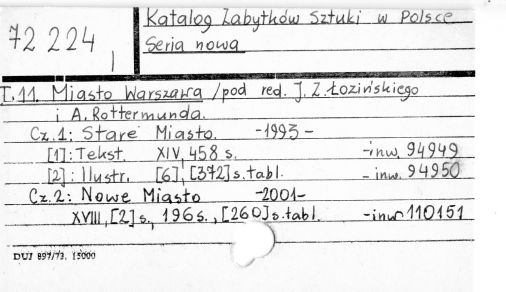 72 224
I
Katalog Zabytków Sztuki w Polsce
Seria nowa
T. 11. Miasto Warszawa /pod red. J. Z. Łozińskiego
i A. Rottermunda.
Cz. 1: Stare Miasto. -1993-
[1]: Tekst. XIV, 458 s. -inw. 94949
[2]: Ilustr. [6], [372] s. tabl. - inw. 94950
Cz. 2: Nowe Miasto -2001-
XVIII, [2] s., 196 s., [260] s. tabl. -inw 110151
DUJ 897/73. 15000